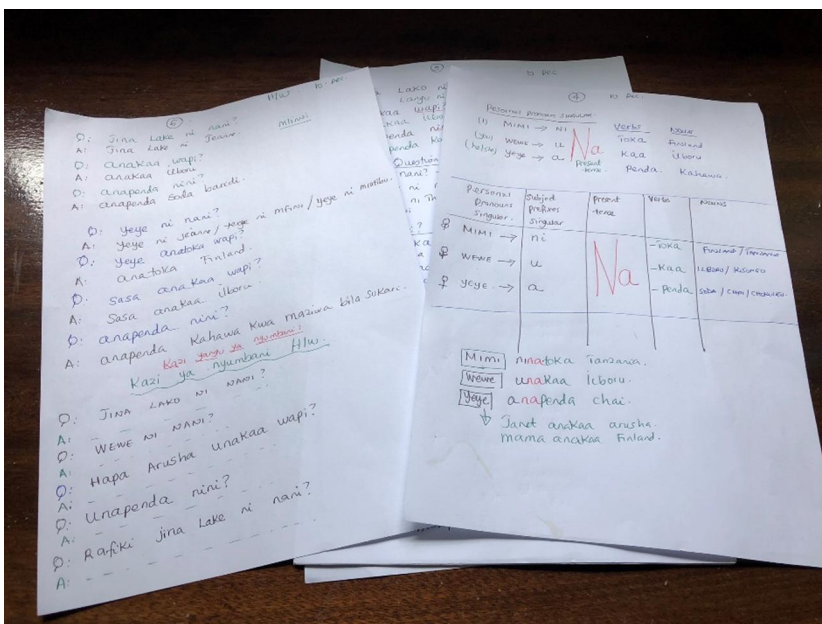 ⑥ H/W 10 DEC
Q: Jina Lake ni nani?
A: Jina Lake ni Jeanne.
Q: anakaa wapi?
A: anakaa ilboru.
Q: anapenda nini?
A: anapenda soda baridi.
Q: Yeye ni nani?
A: Yeye ni Jeanne/ Yeye ni mfini/ Yeye ni
Q: Yeye anatoka wapi?
A: anatoka Finland.
Q: Sasa anakaa wapi?
A: Sasa anakaa ilboru.
Q: anapenda nini?
A: anapenda Kahawa Kwa maziwa bila sukari.
Kazi yangu ya nyumbani:
Kazi ya nyumbani H/w.
Q: JINA LAKO NI NANI?
A:
Q: WEWE NI NANI?
A:
Q: Hapa Arusha unakaa wapi?
A:
Q: Unapenda nini?
A:
Q: Rafiki jina Lake ni nani?
A:
10 DEC
Lako ni
Question
nani?
④ 10 DEC
Personal pronoun singular
(I) MIMI → NI Na Verbs Nouns
(you) WEWE → U Toka Finland
(he/she) YEYE → a Present tence Kaa ilboru
Penda Kahawa
Personal Pronouns Singular Subject prefixes singular Present tence Verbs Nouns
MIMI → ni Na -Toka FINLAND / TANZANIA
WEWE → u -Kaa ILBORU / KISONGO
YEYE → a -Penda SODA / CHAI /
Mimi ninatoka Tanzania.
Wewe unakaa ilboru.
Yeye anapenda chai.
Janet anakaa arusha.
mama anakaa Finland.